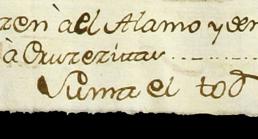 zen à el Alamo y den
à Cruzezittas
Suma el tod